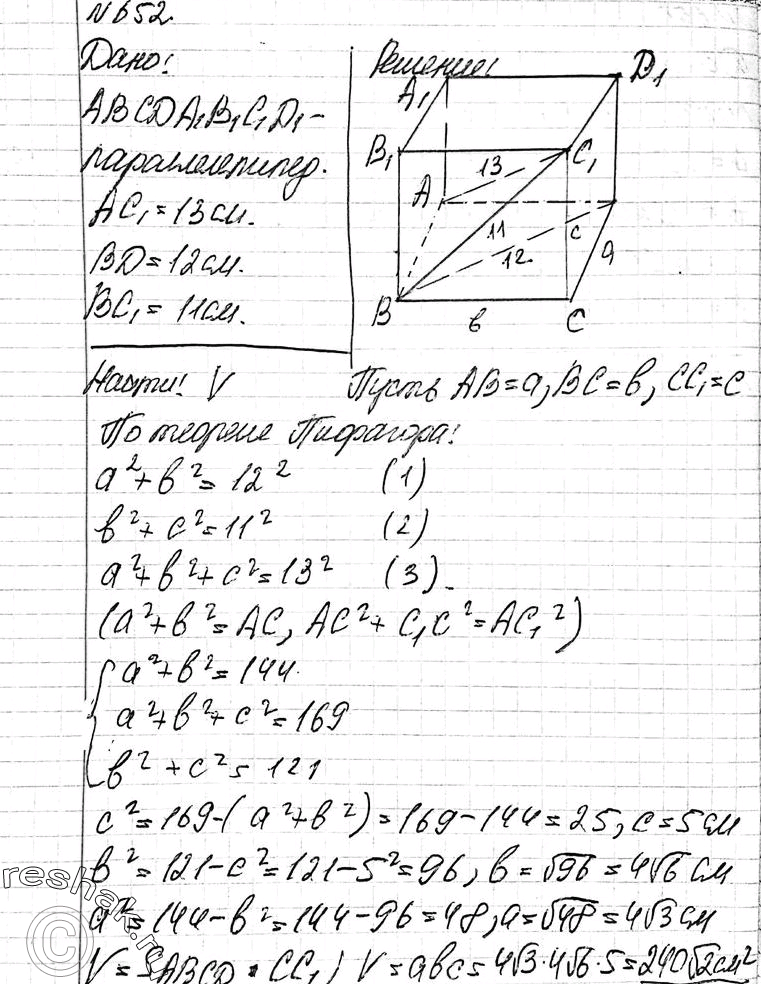 N 652.
Дано:
Решение:
ABCDA₁B₁C₁D₁ -
параллелепипед.
AC₁ = 13 см.
BD = 12 см.
BC₁ = 11 см.
A₁
D₁
B₁
C₁
13
A
11
c
12
a
B
в
C
Найти: V
Пусть AB = a, BC = в, CC₁ = c
По теореме Пифагора:
a² + в² = 12² (1)
в² + c² = 11² (2)
a² + в² + c² = 13² (3)
(a² + в² = AC, AC² + C₁C² = AC₁²)
a² + в² = 144
a² + в² + c² = 169
в² + c² = 121
c² = 169 - (a² + в²) = 169 - 144 = 25, c = 5 см
в² = 121 - c² = 121 - 5² = 96, в = √96 = 4√6 см
a² = 144 - в² = 144 - 96 = 48, a = √48 = 4√3 см
V = SABCD · CC₁, V = aвc = 4√3 · 4√6 · 5 = 240√2 см²
reshak.ru
©